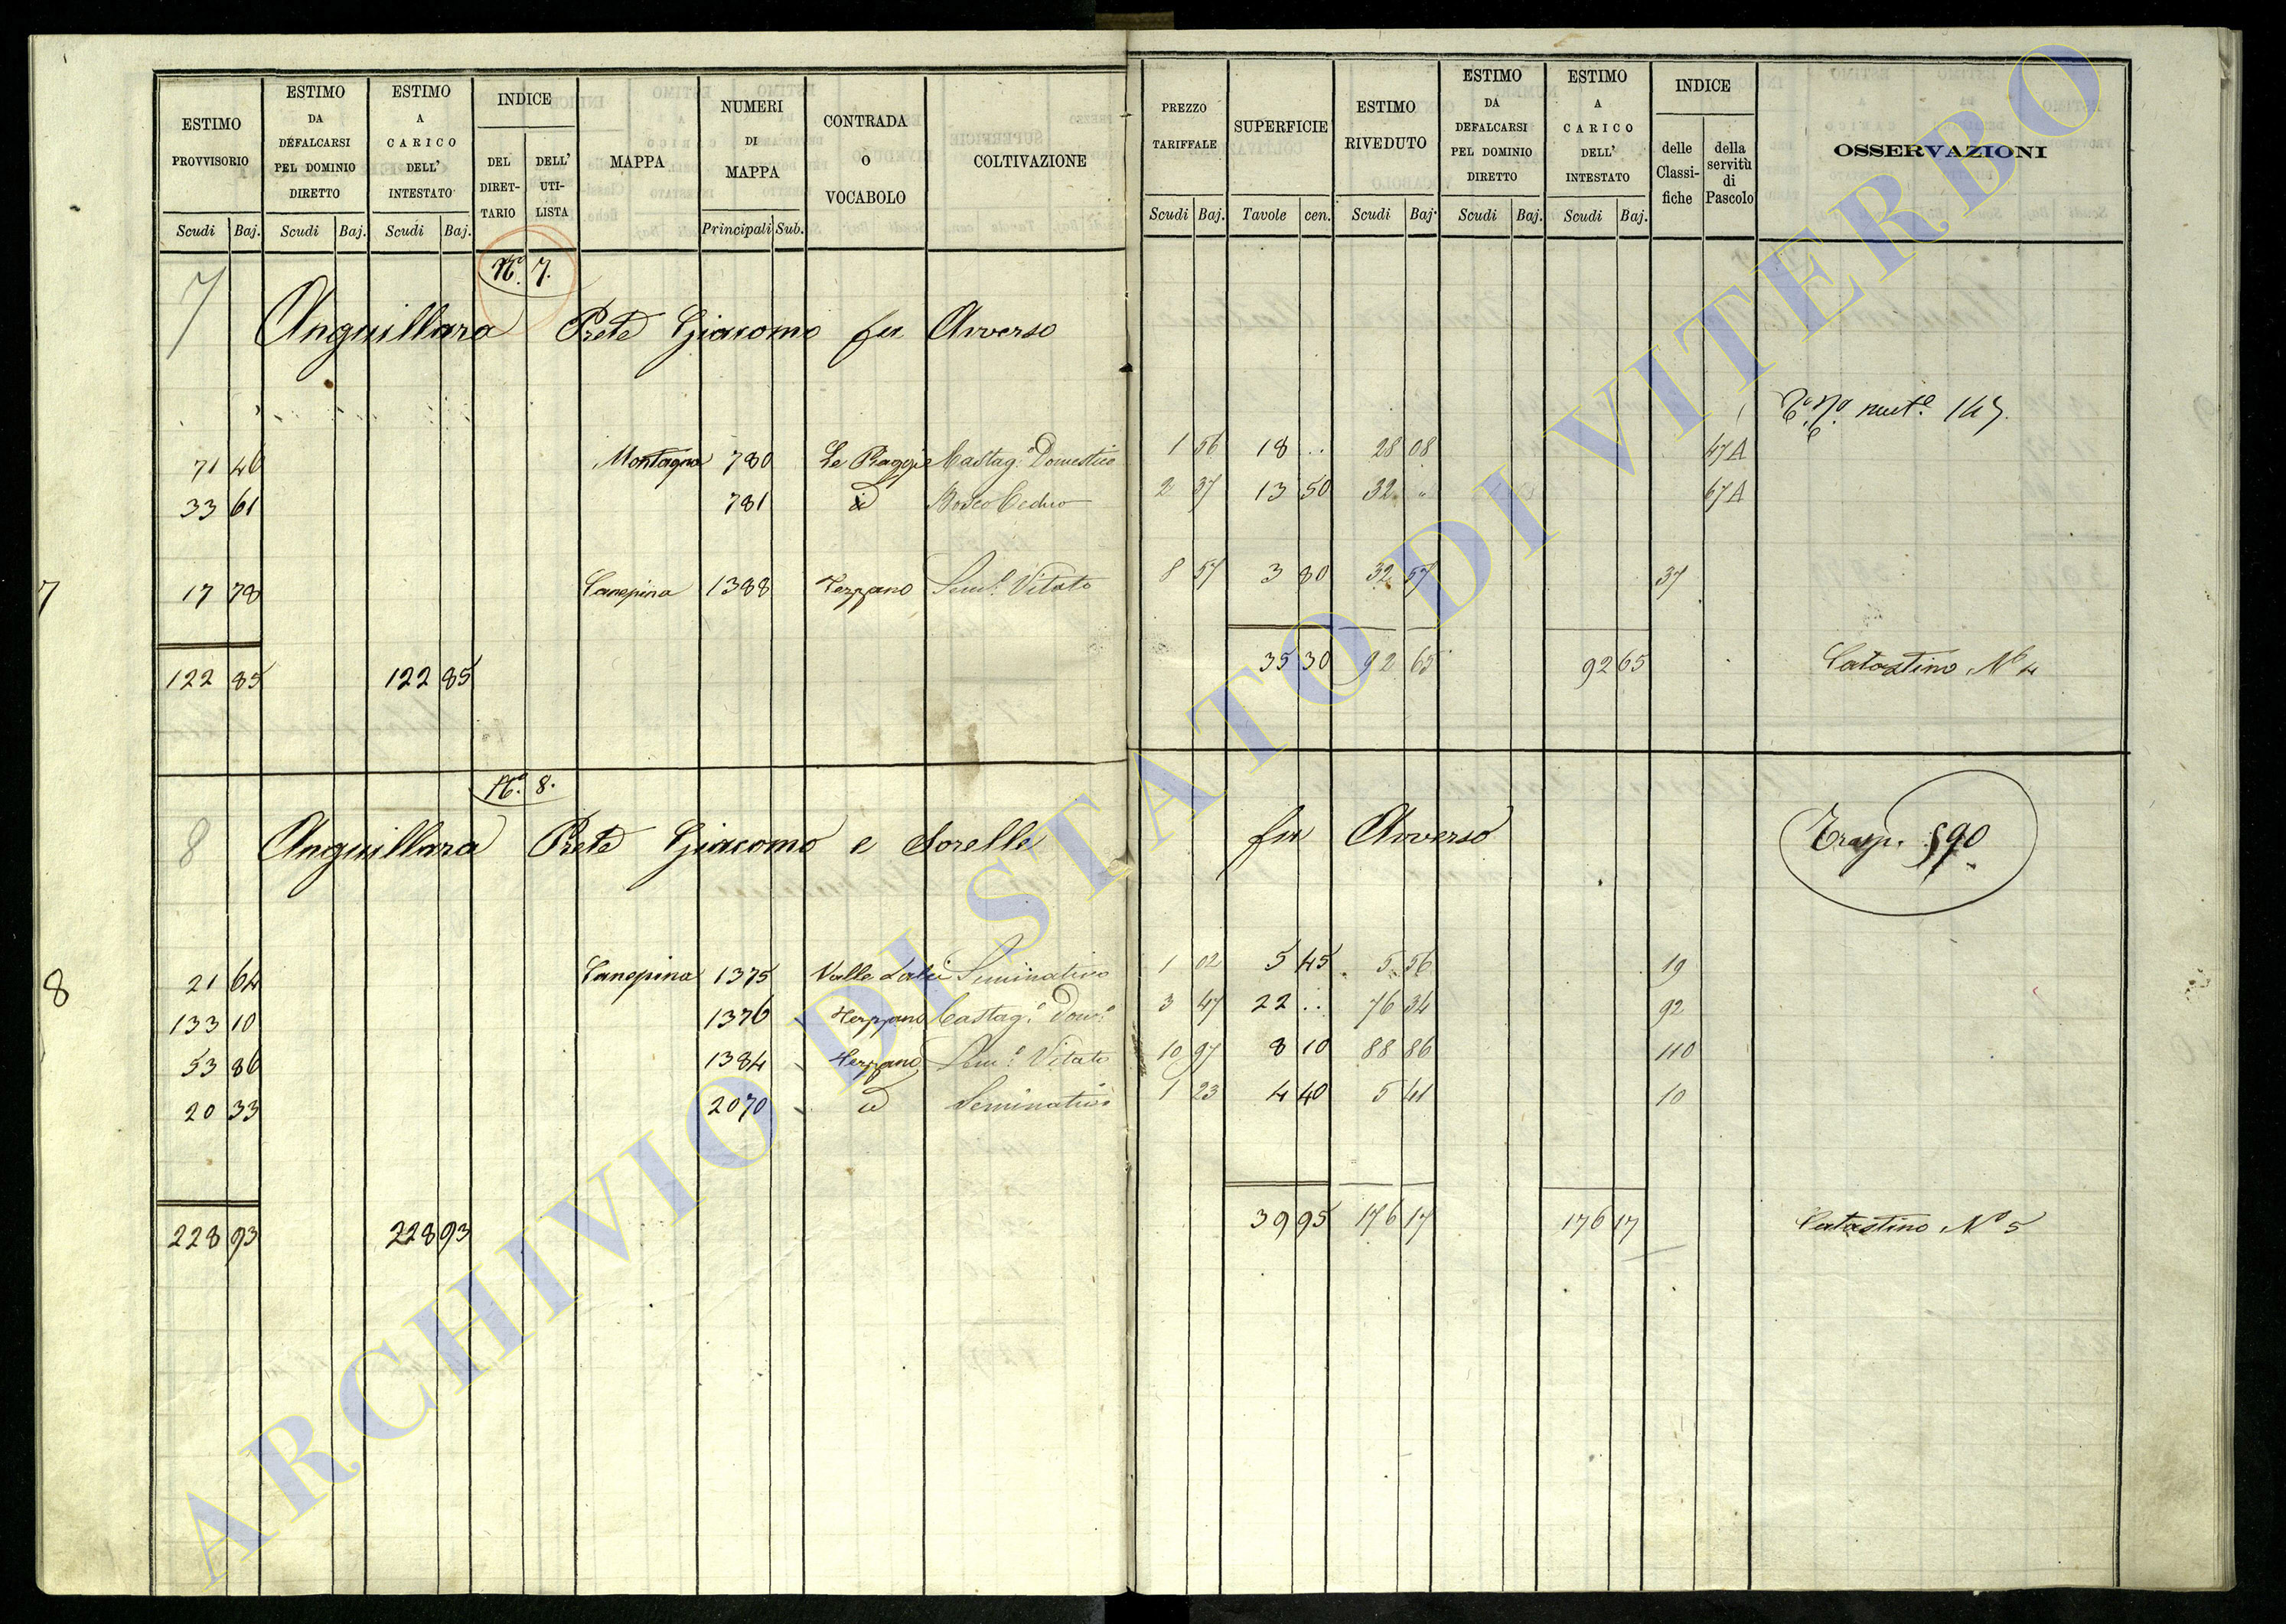 ESTIMO PROVVISORIO Scudi Baj.
ESTIMO DA DEFALCARSI PEL DOMINIO DIRETTO Scudi Baj.
ESTIMO A CARICO DELL' INTESTATO Scudi Baj.
INDICE DEL DIRETTARIO DELL' UTILISTA
MAPPA
NUMERI DI MAPPA Principali Sub.
CONTRADA O VOCABOLO
COLTIVAZIONE
PREZZO TARIFFALE Scudi Baj.
SUPERFICIE Tavole cen.
ESTIMO RIVEDUTO Scudi Baj.
ESTIMO DA DEFALCARSI PEL DOMINIO DIRETTO Scudi Baj.
ESTIMO A CARICO DELL' INTESTATO Scudi Baj.
INDICE delle Classifiche della servitù di Pascolo
OSSERVAZIONI
No. 7.
7 Anguillara Prete Giacomo fu Averso
71 46 Montagna 780 Le Piaggie Castag.o Domestico 1 56 18 .. 28 08 47 A
33 61 781 id Bosco Ceduo 2 37 13 50 32 67 A
7
17 78 Canepina 1388 Sem.o Vitato 8 57 3 80 32 57 37
122 85 122 85 35 30 92 65 92 65 Catastino No 4
No. 8.
8 Anguillara Prete Giacomo e Sorelle fu Averso Trasp. 590
8
21 64 Canepina 1375 Valle Seminativo 1 02 5 45 5 56 19
133 10 1376 Castag.o Dom.o 3 47 22 .. 76 34 92
53 86 1384 Sem.o Vitato 10 97 8 10 88 86 110
20 33 2070 id Seminativo 1 23 4 40 5 41 10
228 93 228 93 39 95 176 17 176 17 Catastino No 5
ARCHIVIO DI STATO DI VITERBO